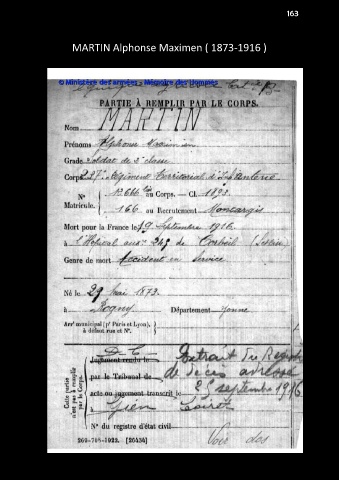 163
MARTIN Alphonse Maximen ( 1873-1916 )
© Ministère des armées - Mémoire des hommes
PARTIE À REMPLIR PAR LE CORPS.
Nom MARTIN
Prénoms Alphonse Maximien
Grade Soldat de 2e classe
Corps 227e Régiment Territorial d'Infanterie
N° au Corps. — Cl. 1893
Matricule. 166 au Recrutement Montargis
Mort pour la France le 19 Septembre 1916
à l'Hôpital aux. 249 de Corbeil
Genre de mort Accident en Service
Né le 29 Mai 1873
à Rogny Département Yonne
Arrt municipal (pr Paris et Lyon),
à défaut rue et N°.
Cette partie n'est pas à remplir par le Corps.
D. C. Extrait du Registre
Jugement rendu le
par le Tribunal de de décès adressé
acte ou jugement transcrit le 25 septembre 1916
à Gien Loiret
N° du registre d'état civil
Voir dos
260-708-1922. [26434]